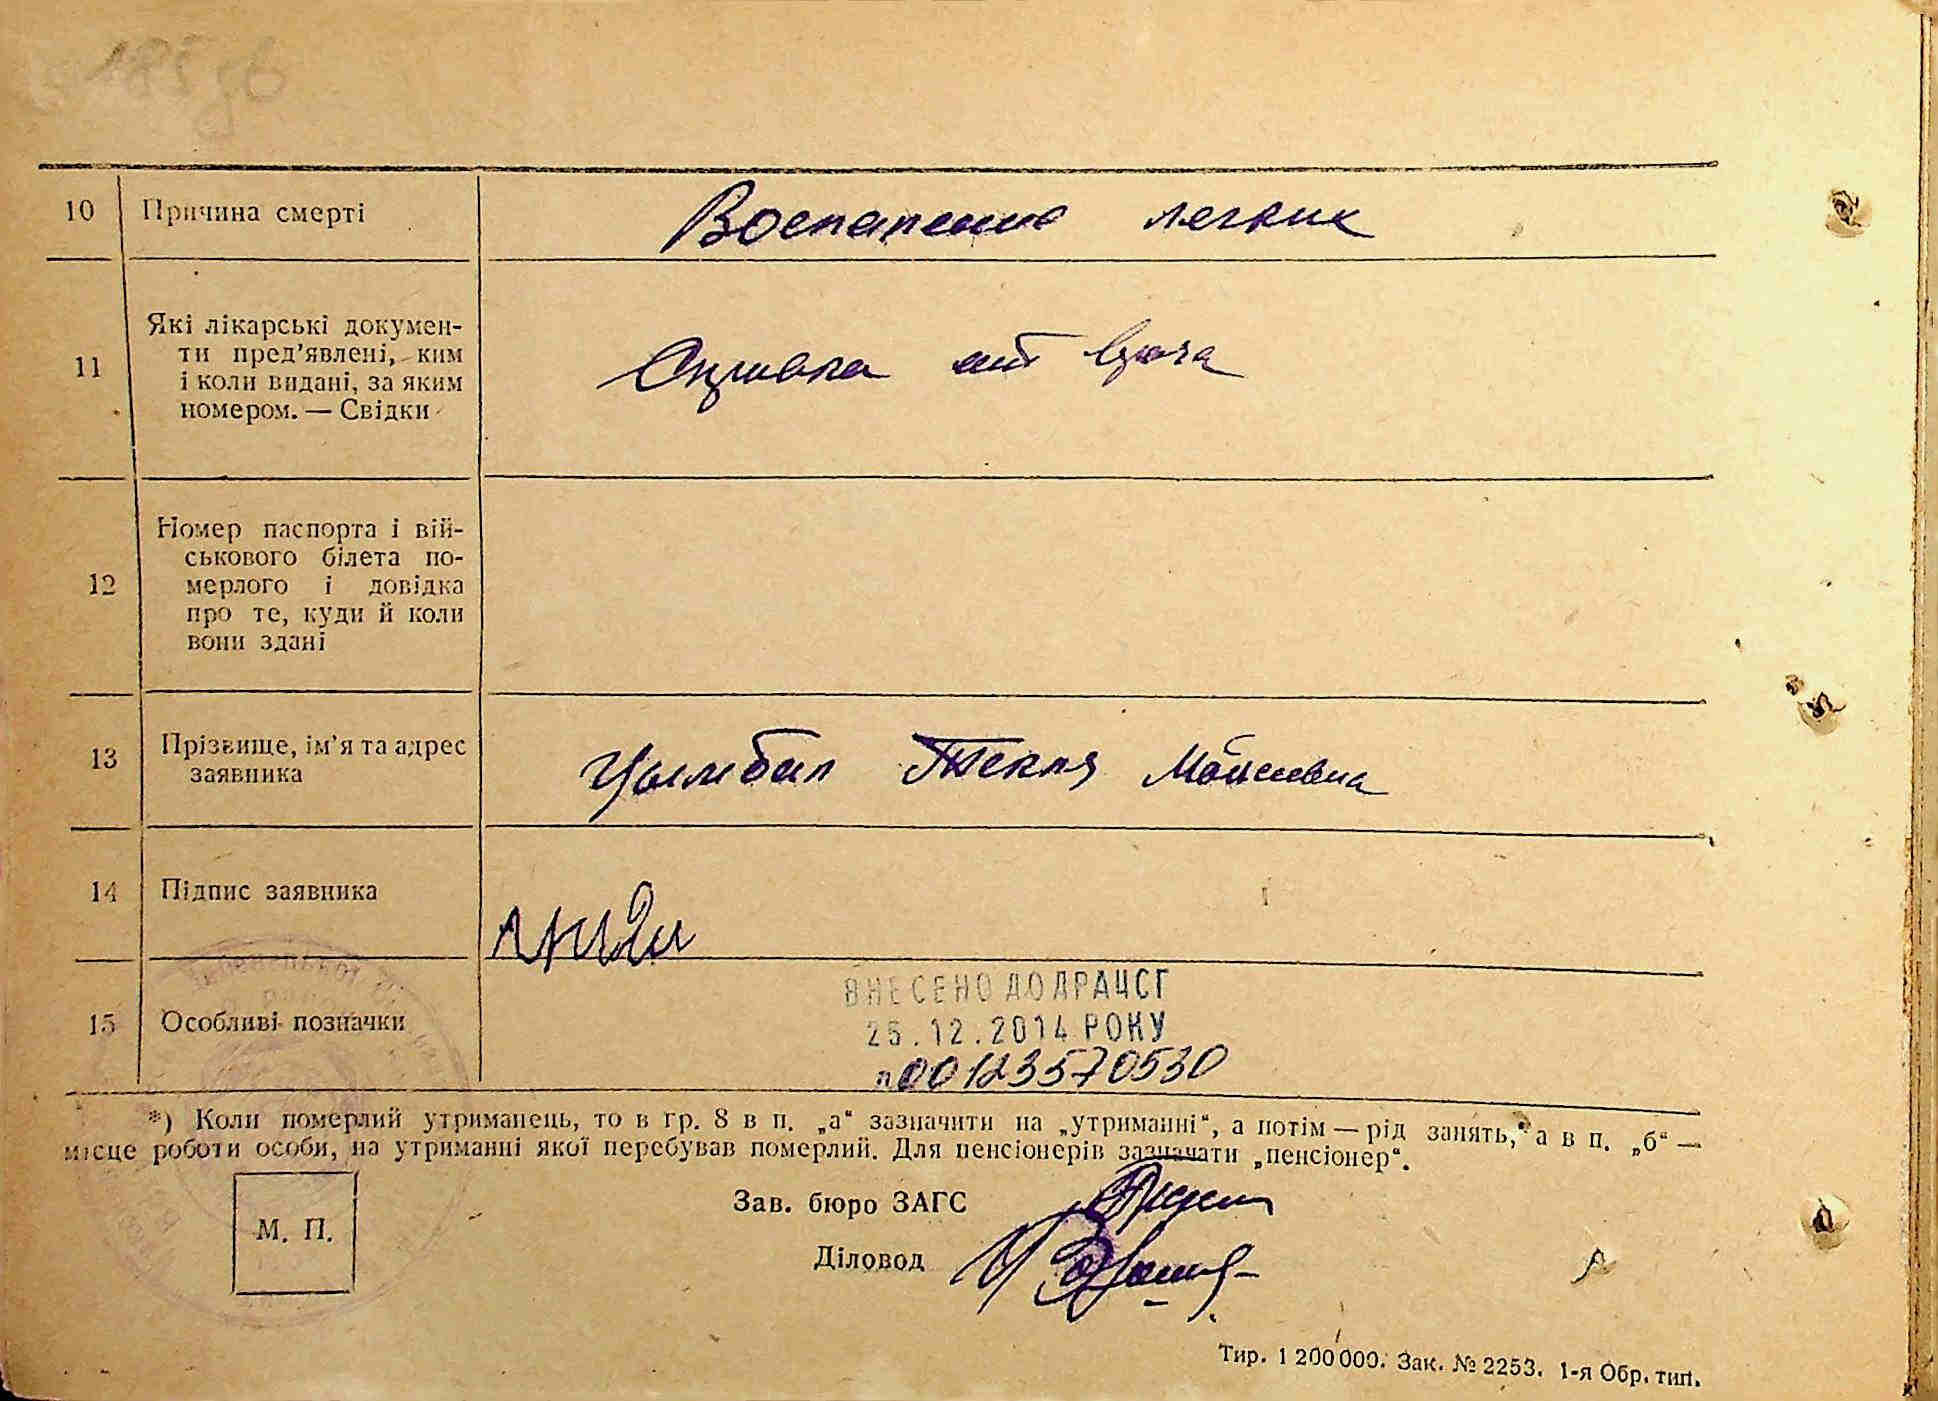 10 Причина смерті Воспаление легких
11 Які лікарські докумен-
ти пред’явлені, ким
і коли видані, за яким
номером. — Свідки
Справка от врача
12 Номер паспорта і вій-
ськового білета по-
мерлого і довідка
про те, куди й коли
вони здані
13 Прізвище, ім’я та адрес
заявника
Цымбал Текля Мойсеевна
14 Підпис заявника
15 Особливі позначки
ВНЕСЕНО ДО ДРАЦСГ
25.12.2014 РОКУ
00123570530
*) Коли померлий утриманець, то в гр. 8 в п. „а“ зазначити на „утриманні“, а потім — рід занять, а в п. „б“ —
місце роботи особи, на утриманні якої перебував померлий. Для пенсіонерів зазначати „пенсіонер“.
Зав. бюро ЗАГС
М. П.
Діловод
Тир. 1 200 000. Зак. № 2253. 1-я Обр. тип.